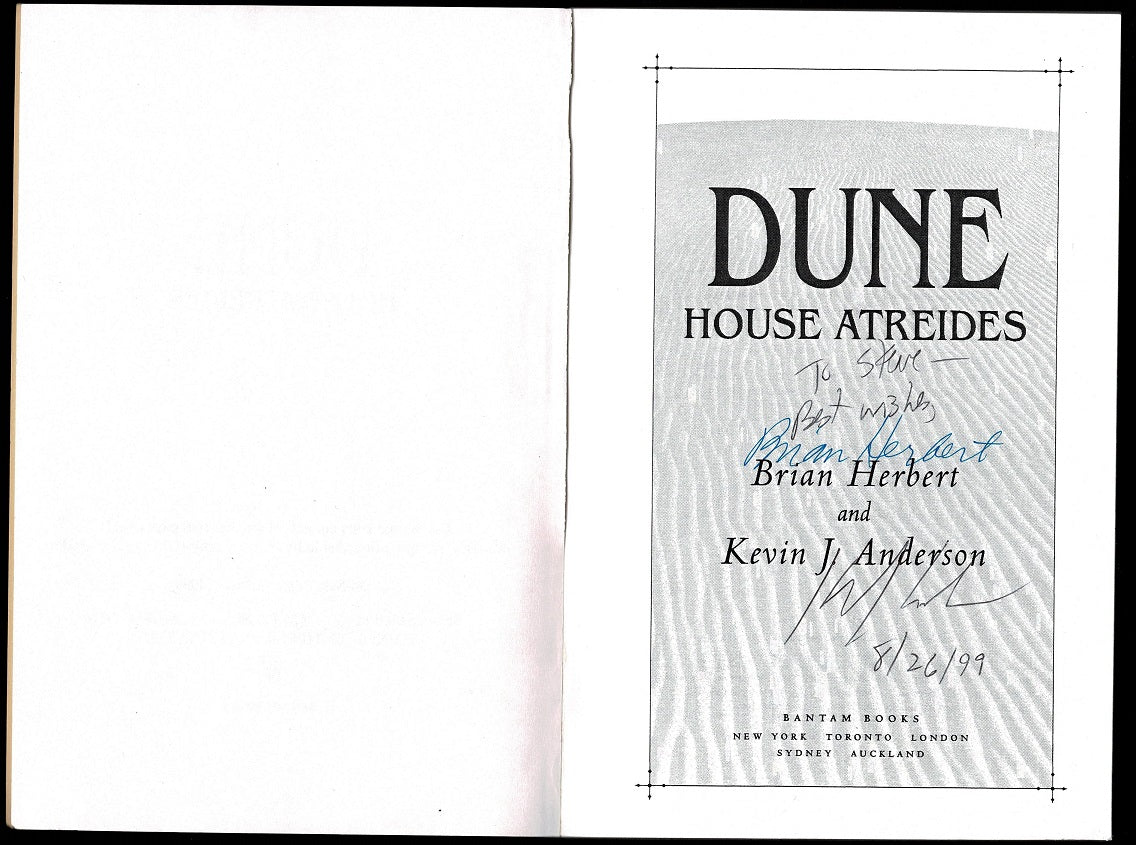 DUNE
HOUSE ATREIDES
To Steve —
Best wishes,
Brian Herbert
Brian Herbert
and
Kevin J. Anderson
8/26/99
BANTAM BOOKS
NEW YORK TORONTO LONDON
SYDNEY AUCKLAND